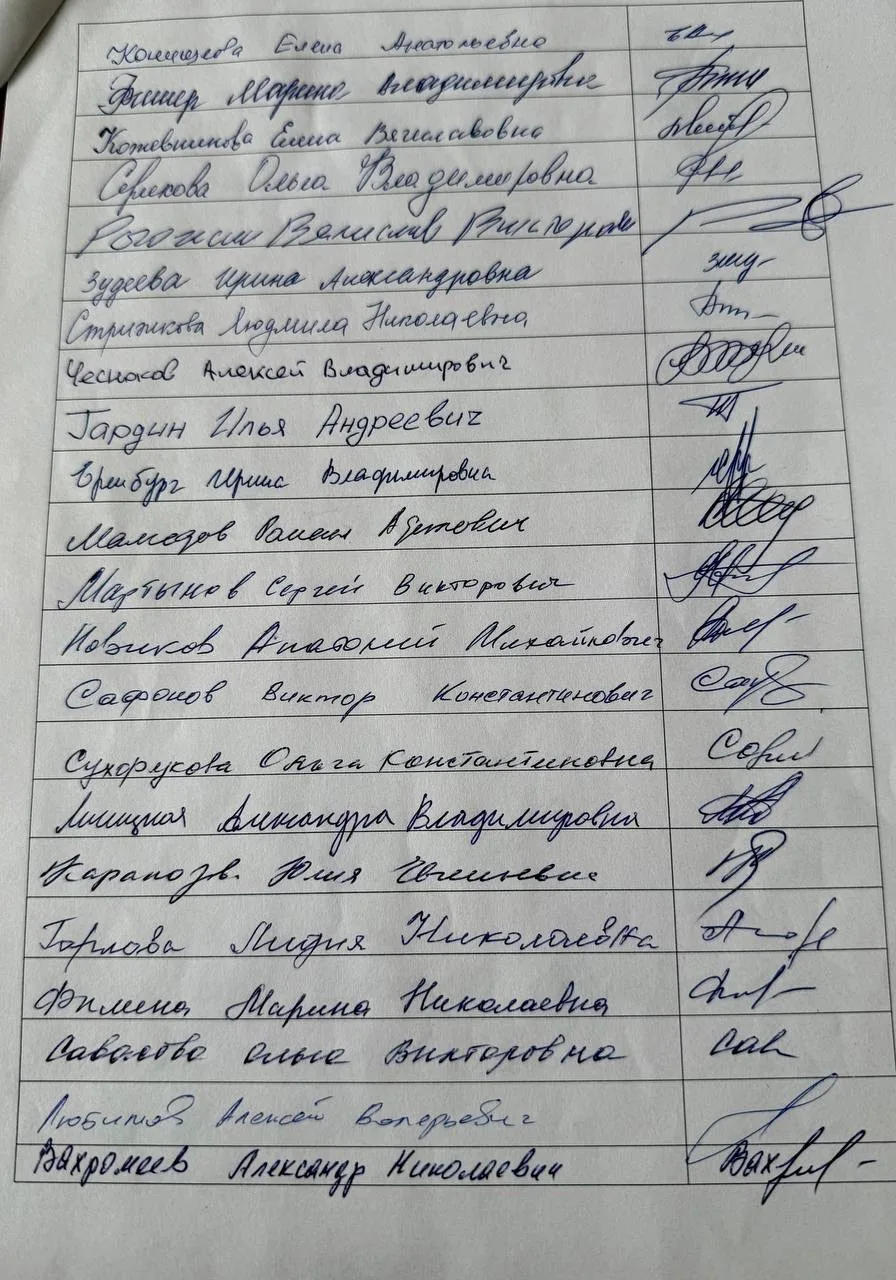 Елена Анатольевна
Фишер Марина Владимировна
Кожевникова Елена Вячеславовна
Серикова Ольга Владимировна
Рогожин Вячеслав Викторович
Зудеева Ирина Александровна
Стрижкова Людмила Николаевна
Чесноков Алексей Владимирович
Гардин Илья Андреевич
Эренбург Ирина Владимировна
Мамедов
Мартынов Сергей Викторович
Новиков Анатолий Михайлович
Сафонов Виктор Константинович
Сухорукова Ольга Константиновна
Александра Владимировна
Юлия
Горлова Лидия Николаевна
Марина Николаевна
Ольга Викторовна сав
Любимов Алексей Валерьевич
Вахромеев Александр Николаевич Вах